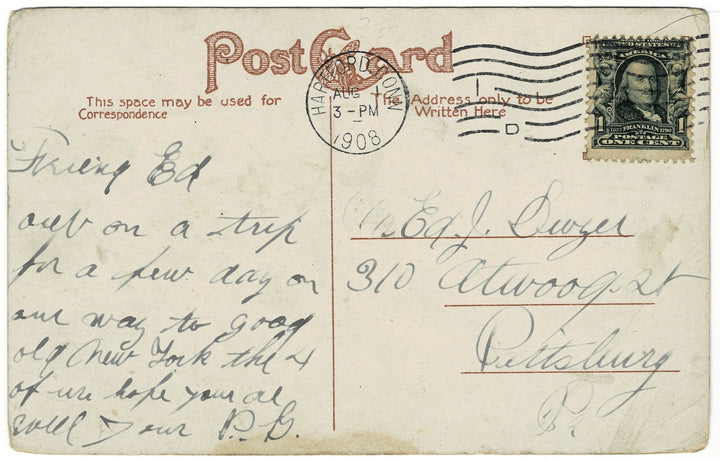 Post Card
This space may be used for
Correspondence
The Address only to be
Written Here
HARTFORD, CONN.
AUG
3 - PM
1908
D
UNITED STATES OF
AMERICA
FRANKLIN
1
1
POSTAGE
ONE CENT
Friend Ed
out on a trip
for a few day on
our way to good
old New York the 4
of us hope your al
well your P.G.
Ed. J. Dwyer
310 Atwood st
Pittsburg
P.